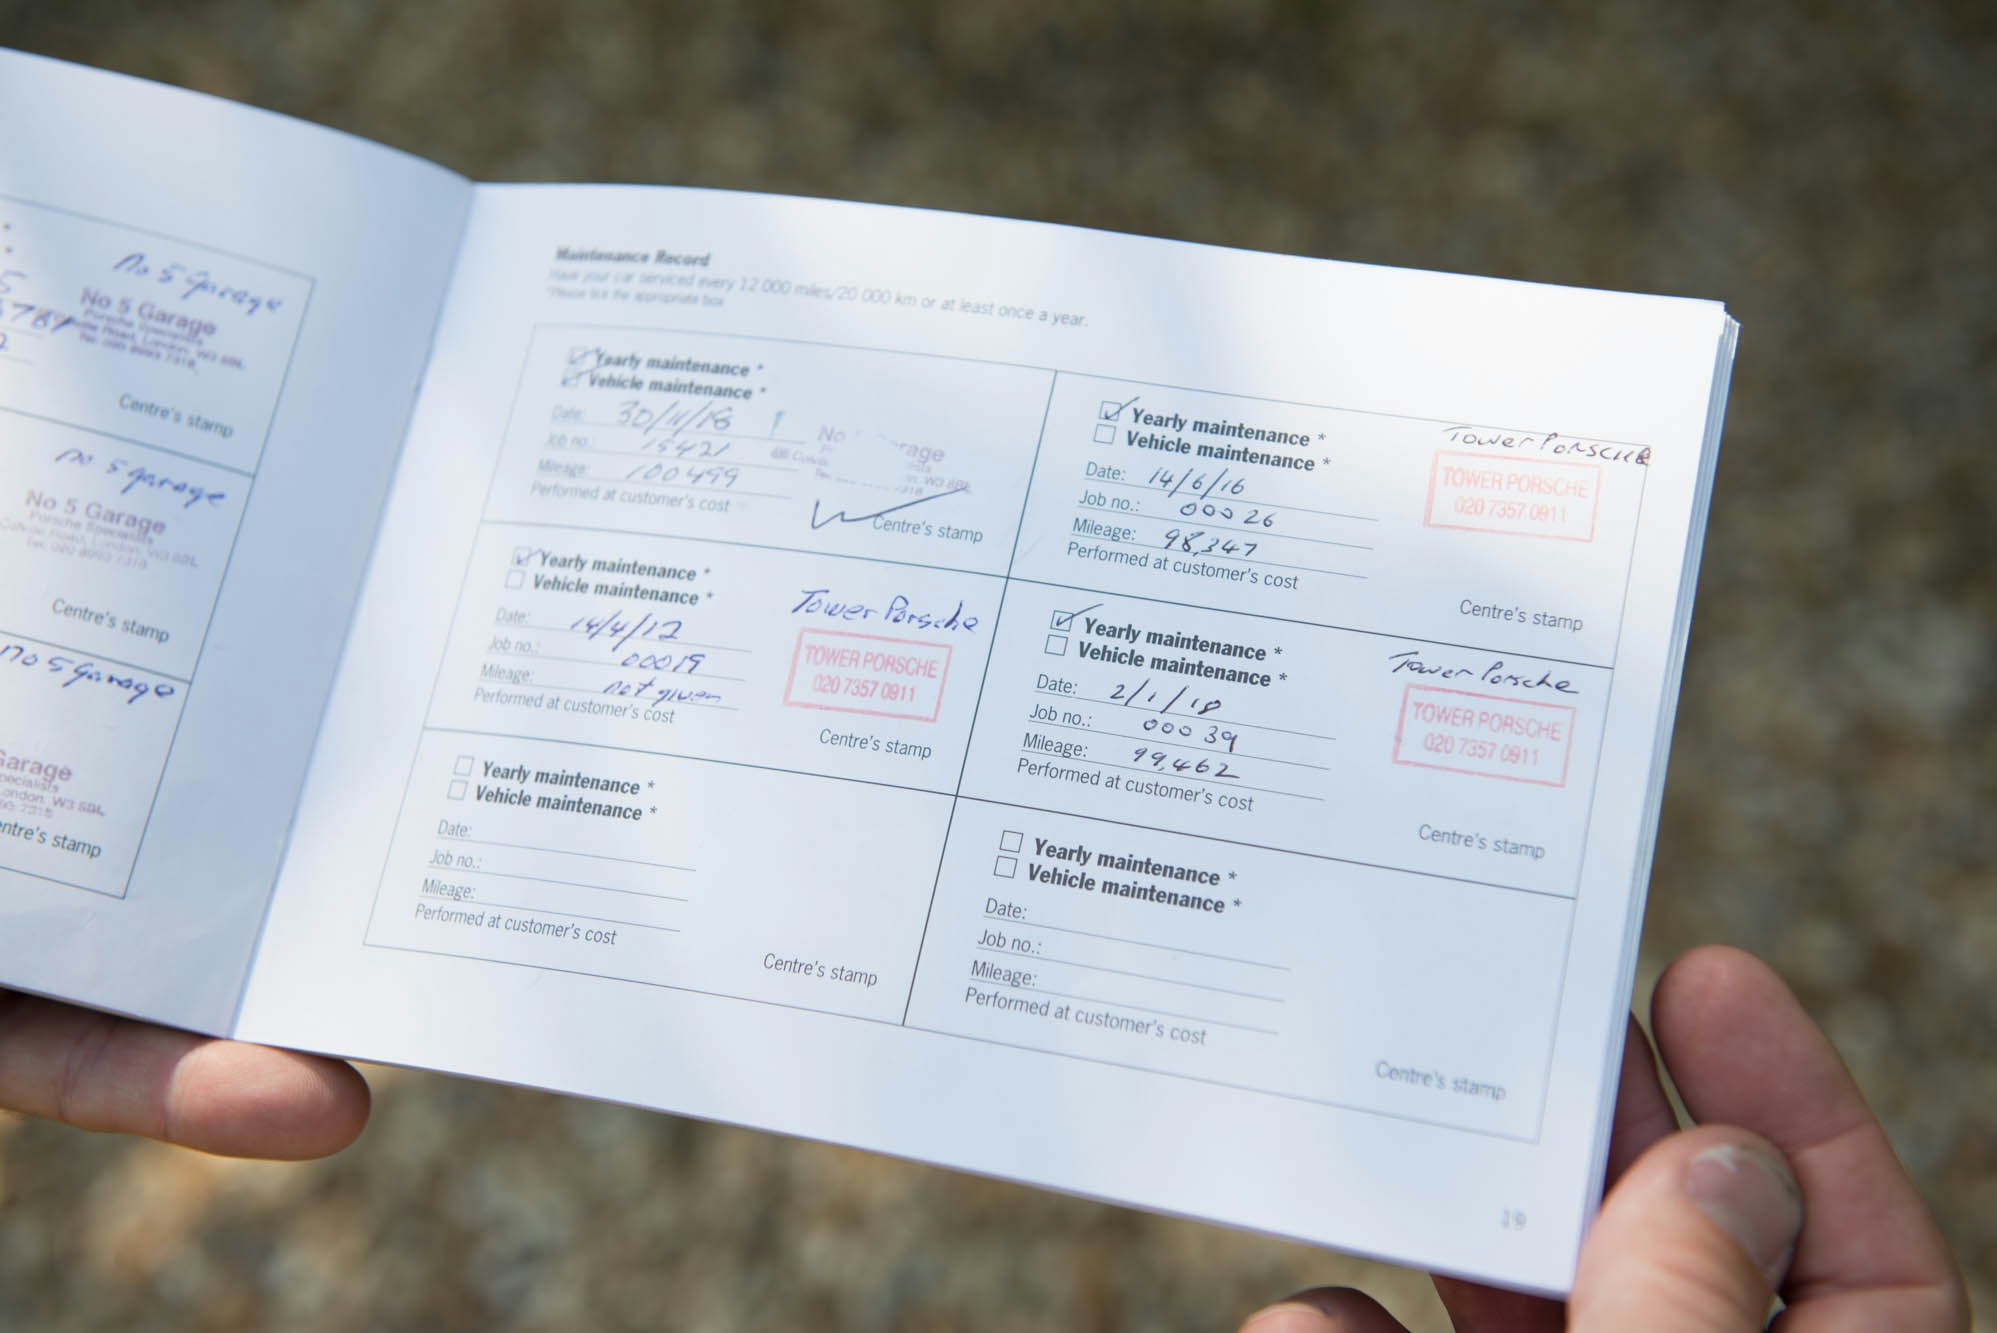 no 5 garage
No 5 Garage
Porsche Specialists
Road, London, W3 8BL
Tel: 020 8993 7318
Centre's stamp
no 5 garage
No 5 Garage
Porsche Specialists
Road, London, W3 8BL
Tel: 020 8993 7318
Centre's stamp
no 5 garage
Garage
London, W3 8BL
Centre's stamp
Maintenance Record
Have your car serviced every 12 000 miles/20 000 km or at least once a year.
*Please tick the appropriate box
Yearly maintenance *
Vehicle maintenance *
Date: 30/11/18
Job no.: 15421
Mileage: 100499
Performed at customer's cost
No
W3 8BL
Centre's stamp
Yearly maintenance *
Vehicle maintenance *
Date: 14/6/16
Job no.: 00026
Mileage: 98,347
Performed at customer's cost
Tower PORSCHE
TOWER PORSCHE
020 7357 0911
Centre's stamp
Yearly maintenance *
Vehicle maintenance *
Date: 14/4/12
Job no.: 00019
Mileage: not given
Performed at customer's cost
Tower Porsche
TOWER PORSCHE
020 7357 0911
Centre's stamp
Yearly maintenance *
Vehicle maintenance *
Date: 2/1/18
Job no.: 00039
Mileage: 99,462
Performed at customer's cost
Tower Porsche
TOWER PORSCHE
020 7357 0911
Centre's stamp
Yearly maintenance *
Vehicle maintenance *
Date:
Job no.:
Mileage:
Performed at customer's cost
Centre's stamp
Yearly maintenance *
Vehicle maintenance *
Date:
Job no.:
Mileage:
Performed at customer's cost
Centre's stamp
19